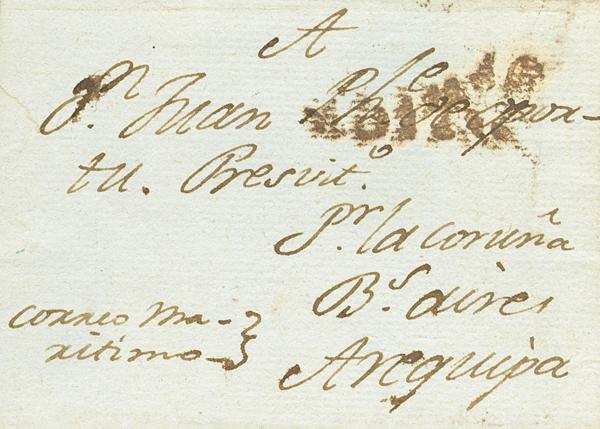 A
Dn. Juan Phe.
tu. Presvito.
Pr. la coruña
Bs. aires
Arequipa
correo Ma-
ritimo